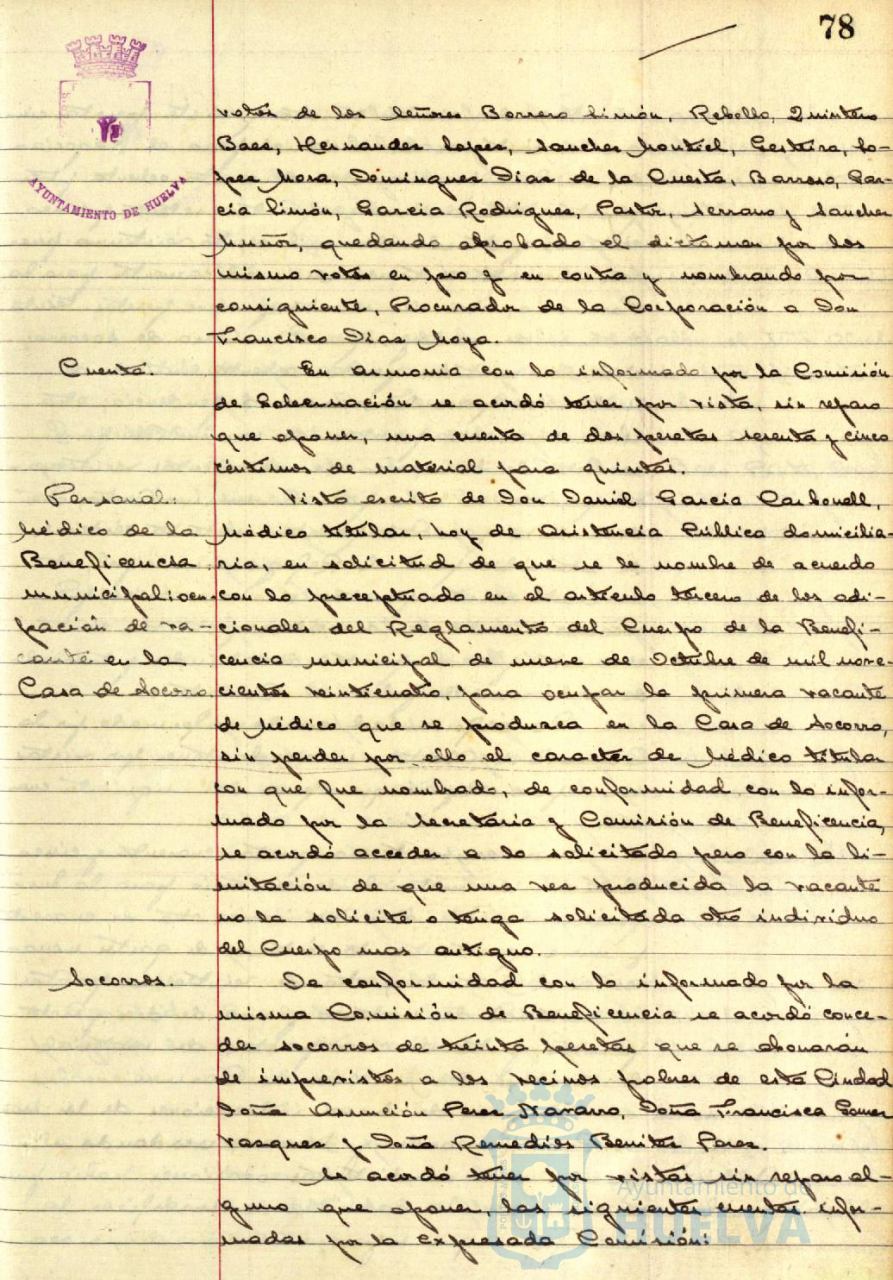 78
AYUNTAMIENTO DE HUELVA
votos de los Señores Borrero Limón, Rebollo, Quintero
Baes, Hernandes Lopes, Sanches Montiel, Gestiira, Lo-
pes Mora, Domingues Dias de la Cuesta, Barroso, Gar-
cía Limón, García Rodrigues, Pastor, Serrano y Sanches
Muñoz, quedando aprobado el dictamen por los
mismo votos en pro y en contra y nombrando por
consiguiente, Procurador de la Corporación a Don
Francisco Dias Moya.
Cuenta.
En armonia con lo informado por la Comisión
de Gobernación se acordó tener por vista, sin reparo
que oponer, una cuenta de dos pesetas sesenta y cinco
céntimos de material para quintas.
Personal:
Médico de la
Beneficencia
municipal: ocu-
pación de va-
cante en la
Casa de Socorro.
Visto escrito de Don Daniel García Carbonell,
Médico titular, hoy de Asistencia Pública domicilia-
ria, en solicitud de que se le nombre de acuerdo
con lo preceptuado en el artículo tercero de los adi-
cionales del Reglamento del Cuerpo de la Benefi-
cencia municipal de nueve de Octubre de mil nove-
cientos veinticuatro, para ocupar la primera vacante
de Médico que se produzca en la Casa de Socorro,
sin perder por ello el caracter de Médico titular
con que fue nombrado, de conformidad con lo infor-
mado por la Secretaría y Comisión de Beneficencia,
se acordó acceder a lo solicitado pero con la li-
mitación de que una vez producida la vacante
no la solicite o tenga solicitada otro individuo
del Cuerpo mas antiguo.
Socorros.
De conformidad con lo informado por la
misma Comisión de Beneficencia se acordó conce-
der socorros de treinta pesetas que se abonarán
de imprevistos a los vecinos pobres de esta Ciudad
Doña Asunción Peres Navarro, Doña Francisca Gomes
Vasques y Doña Remedios Benites Peres.
Se acordó tener por vistas sin reparo al-
guno que oponer, las siguientes cuentas infor-
madas por la expresada Comisión:
Ayuntamiento de
HUELVA